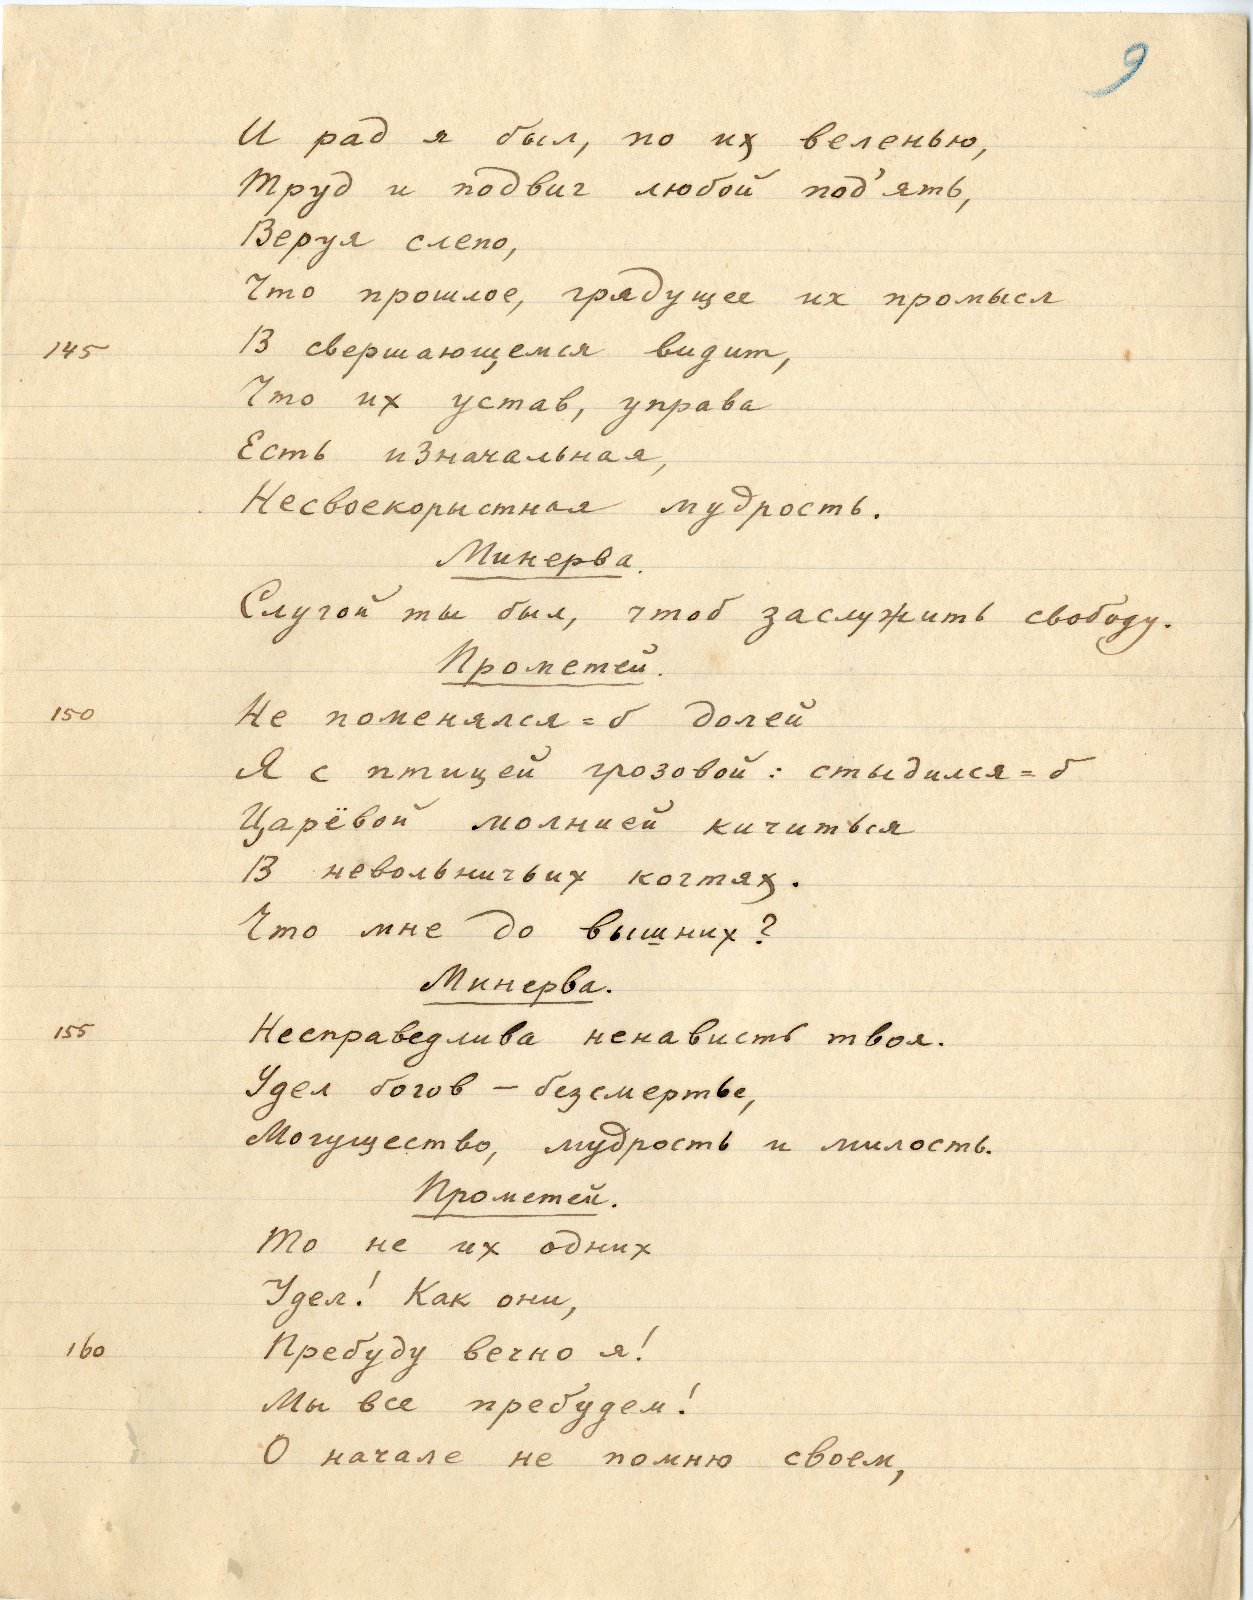 9
И рад я был, по их веленью,
Труд и подвиг любой под'ять,
Веруя слепо,
Что прошлое, грядущее их промысл
145 В свершающемся видит,
Что их устав, управа
Есть изначальная,
Несвоекорыстная мудрость.
Минерва.
Слугой ты был, чтоб заслужить свободу.
Прометей.
150 Не поменялся=б долей
Я с птицей грозовой: стыдился=б
Царёвой молнией кичиться
В невольничьих когтях.
Что мне до вышних?
Минерва.
155 Несправедлива ненависть твоя.
Удел богов — безсмертье,
Могущество, мудрость и милость.
Прометей.
То не их одних
Удел! Как они,
160 Пребуду вечно я!
Мы все пребудем!
О начале не помню своем,